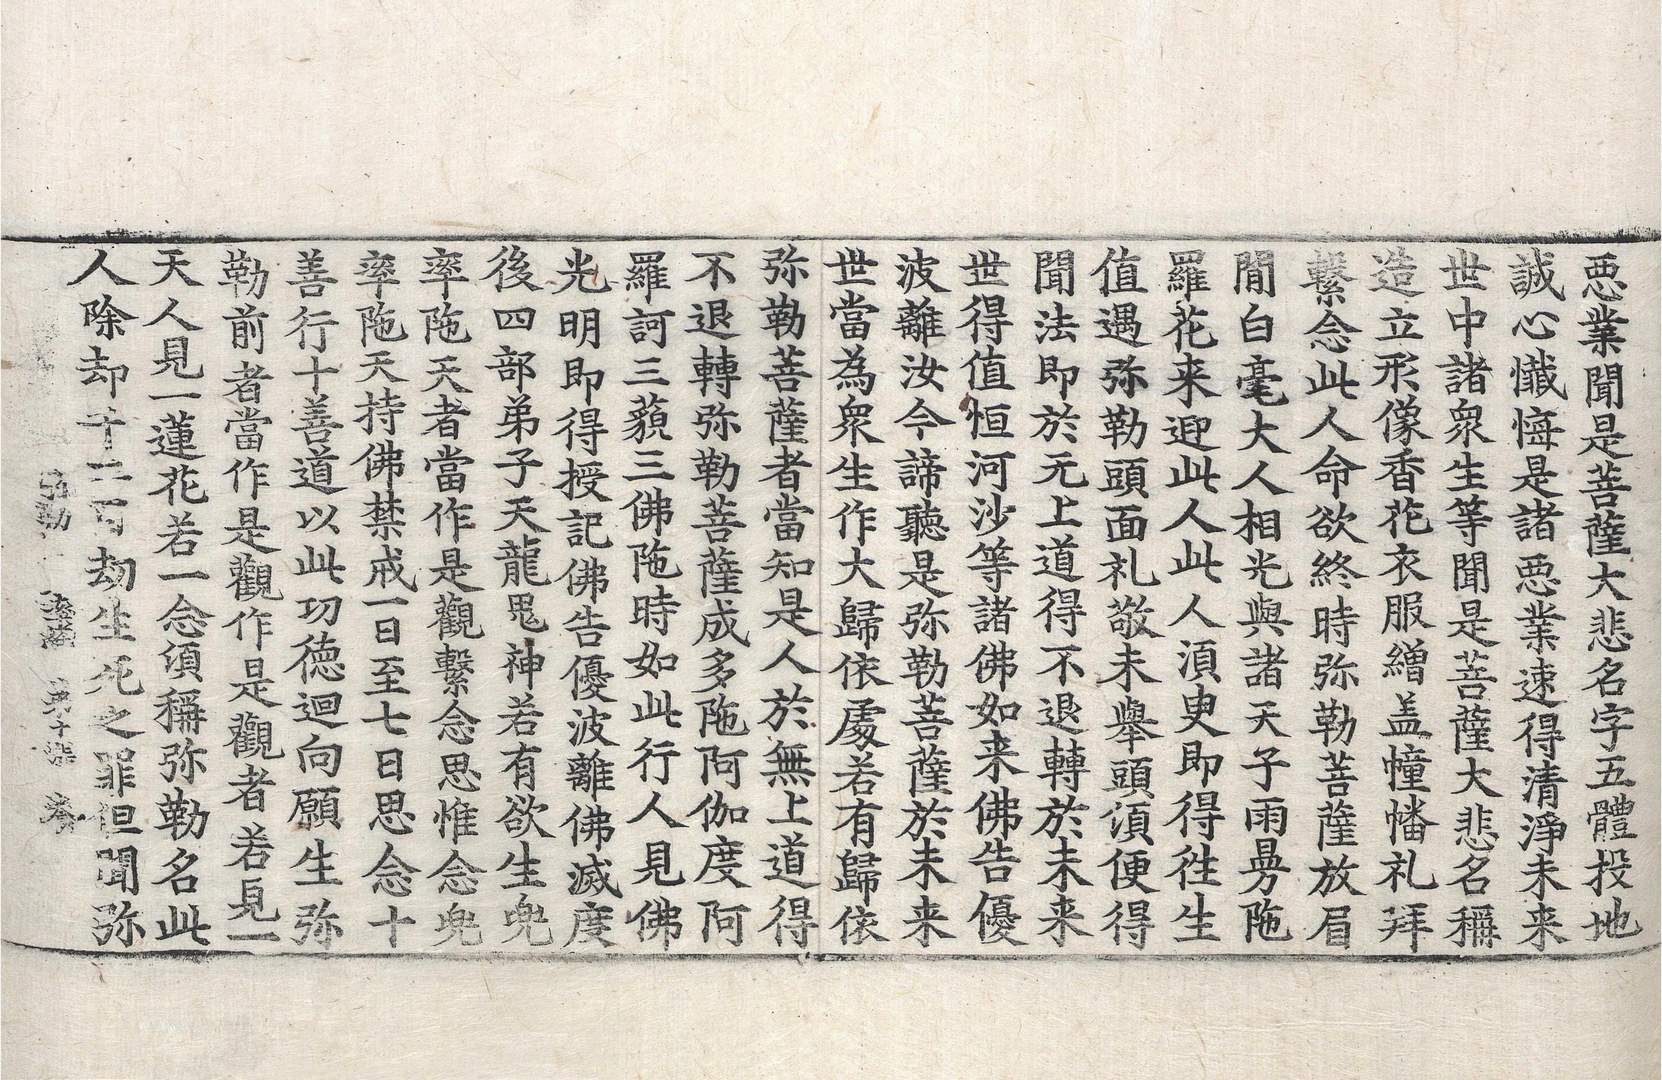 惡業聞是菩薩大悲名字五體投地
誠心懺悔是諸惡業速得清淨未来
世中諸衆生等聞是菩薩大悲名稱
造立形像香花衣服繒盖幢幡礼拜
繫念此人命欲終時弥勒菩薩放眉
間白毫大人相光與諸天子雨曼陁
羅花来迎此人此人湏臾即得往生
值遇弥勒頭面礼敬未舉頭湏便得
聞法即於无上道得不退轉於未来
世得值恒河沙等諸佛如来佛告優
波離汝今諦聽是弥勒菩薩於未来
世當為衆生作大歸依處若有歸依
弥勒菩薩者當知是人於無上道得
不退轉弥勒菩薩成多陁阿伽度阿
羅訶三藐三佛陁時如此行人見佛
光明即得授記佛告優波離佛滅度
後四部弟子天龍鬼神若有欲生兜
率陁天者當作是觀繫念思惟念兜
率陁天持佛禁戒一日至七日思念十
善行十善道以此功德迴向願生弥
勒前者當作是觀作是觀者若見一
天人見一蓮花若一念湏稱弥勒名此
人除却千二百劫生死之罪但聞弥